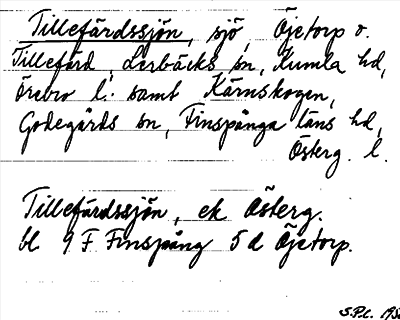 Tillefärdssjön, sjö, Öjetorp o.
Tillefärd, Lerbäcks sn, Kumla hd,
Örebro l. samt Kärnskogen,
Godegårds sn, Finspånga läns hd,
Österg. l.
Tillefärdssjön, ek Österg.
bl 9 F Finspång 5 d Öjetorp.
S.P.L.